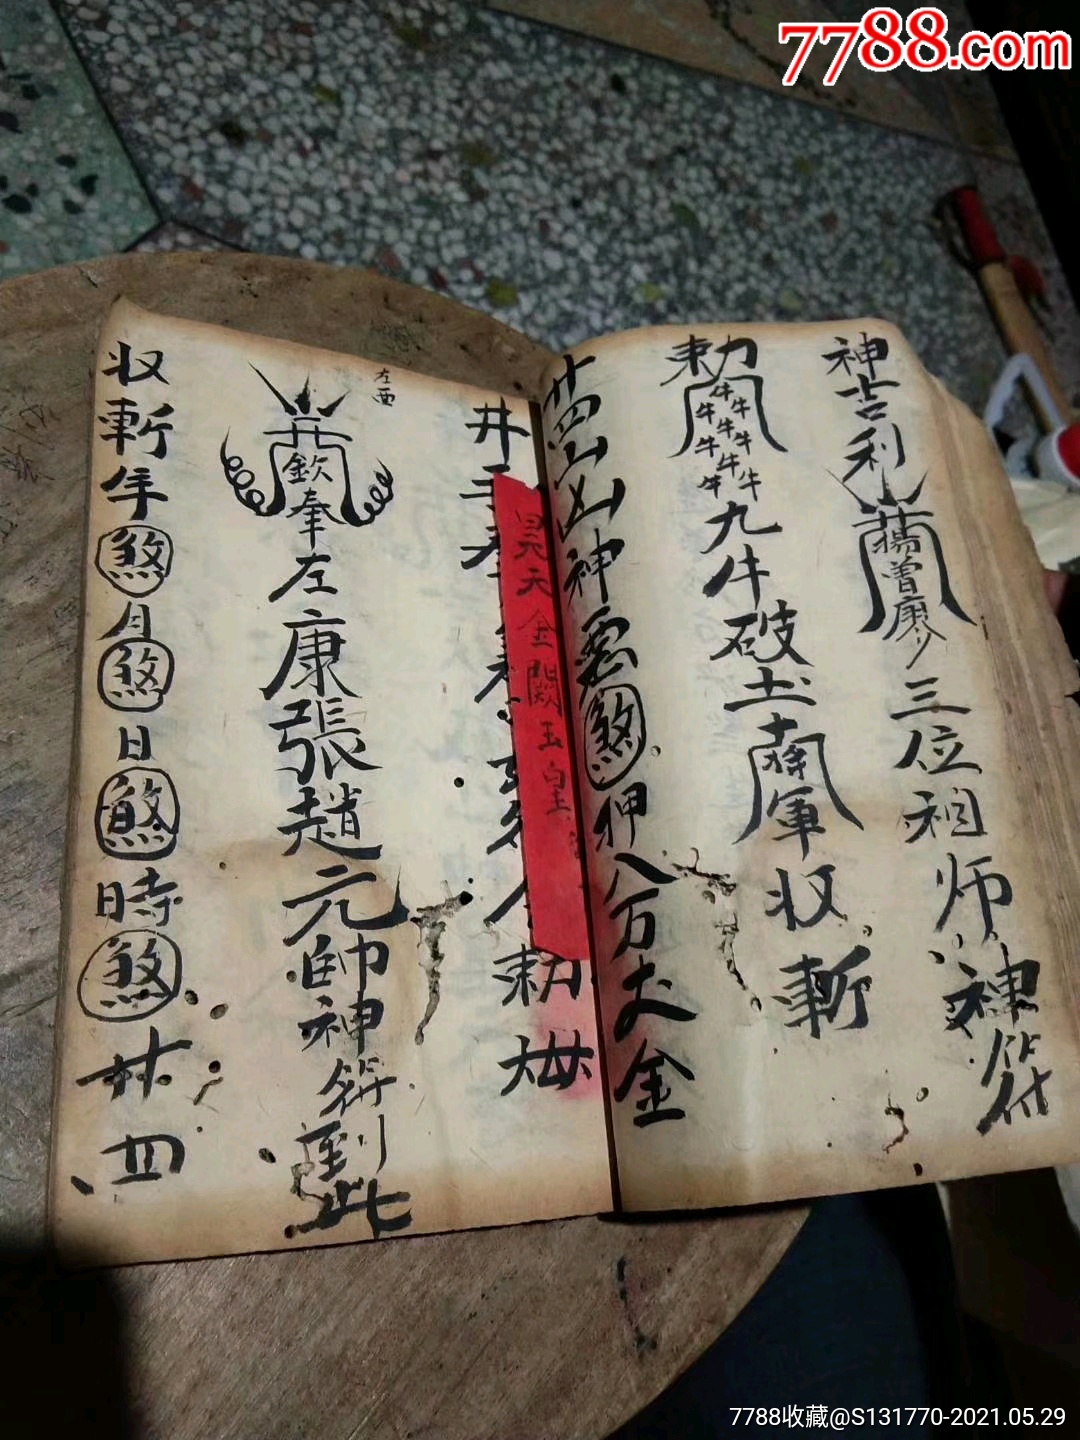 7788.com
神吉利
楊曾廖三位祖师神符
勅
牛牛牛牛牛牛牛牛牛
九牛破土將軍收斬
凶神惡煞押入万丈金
井
勅
昊天金闕玉皇
左西
欽奉左康張趙元帥神符到此
收斬年煞月煞日煞時煞廿四
7788收藏@S131770-2021.05.29